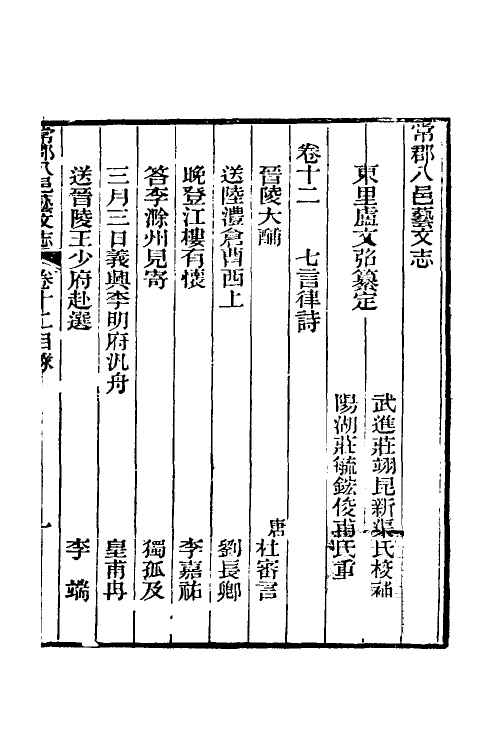 常郡八邑藝文志
東里盧文弨纂定
武進莊翊昆新渠氏校補
陽湖莊毓鋐俊甫氏重
卷十二　七言律詩
晉陵大酺　唐　杜審言
送陸灃倉曹西上　劉長卿
晚登江樓有懷　李嘉祐
答李滁州見寄　獨孤及
三月三日義興李明府汎舟　皇甫冉
送晉陵王少府赴選　李端
常郡八邑藝文志　卷十二目錄　一